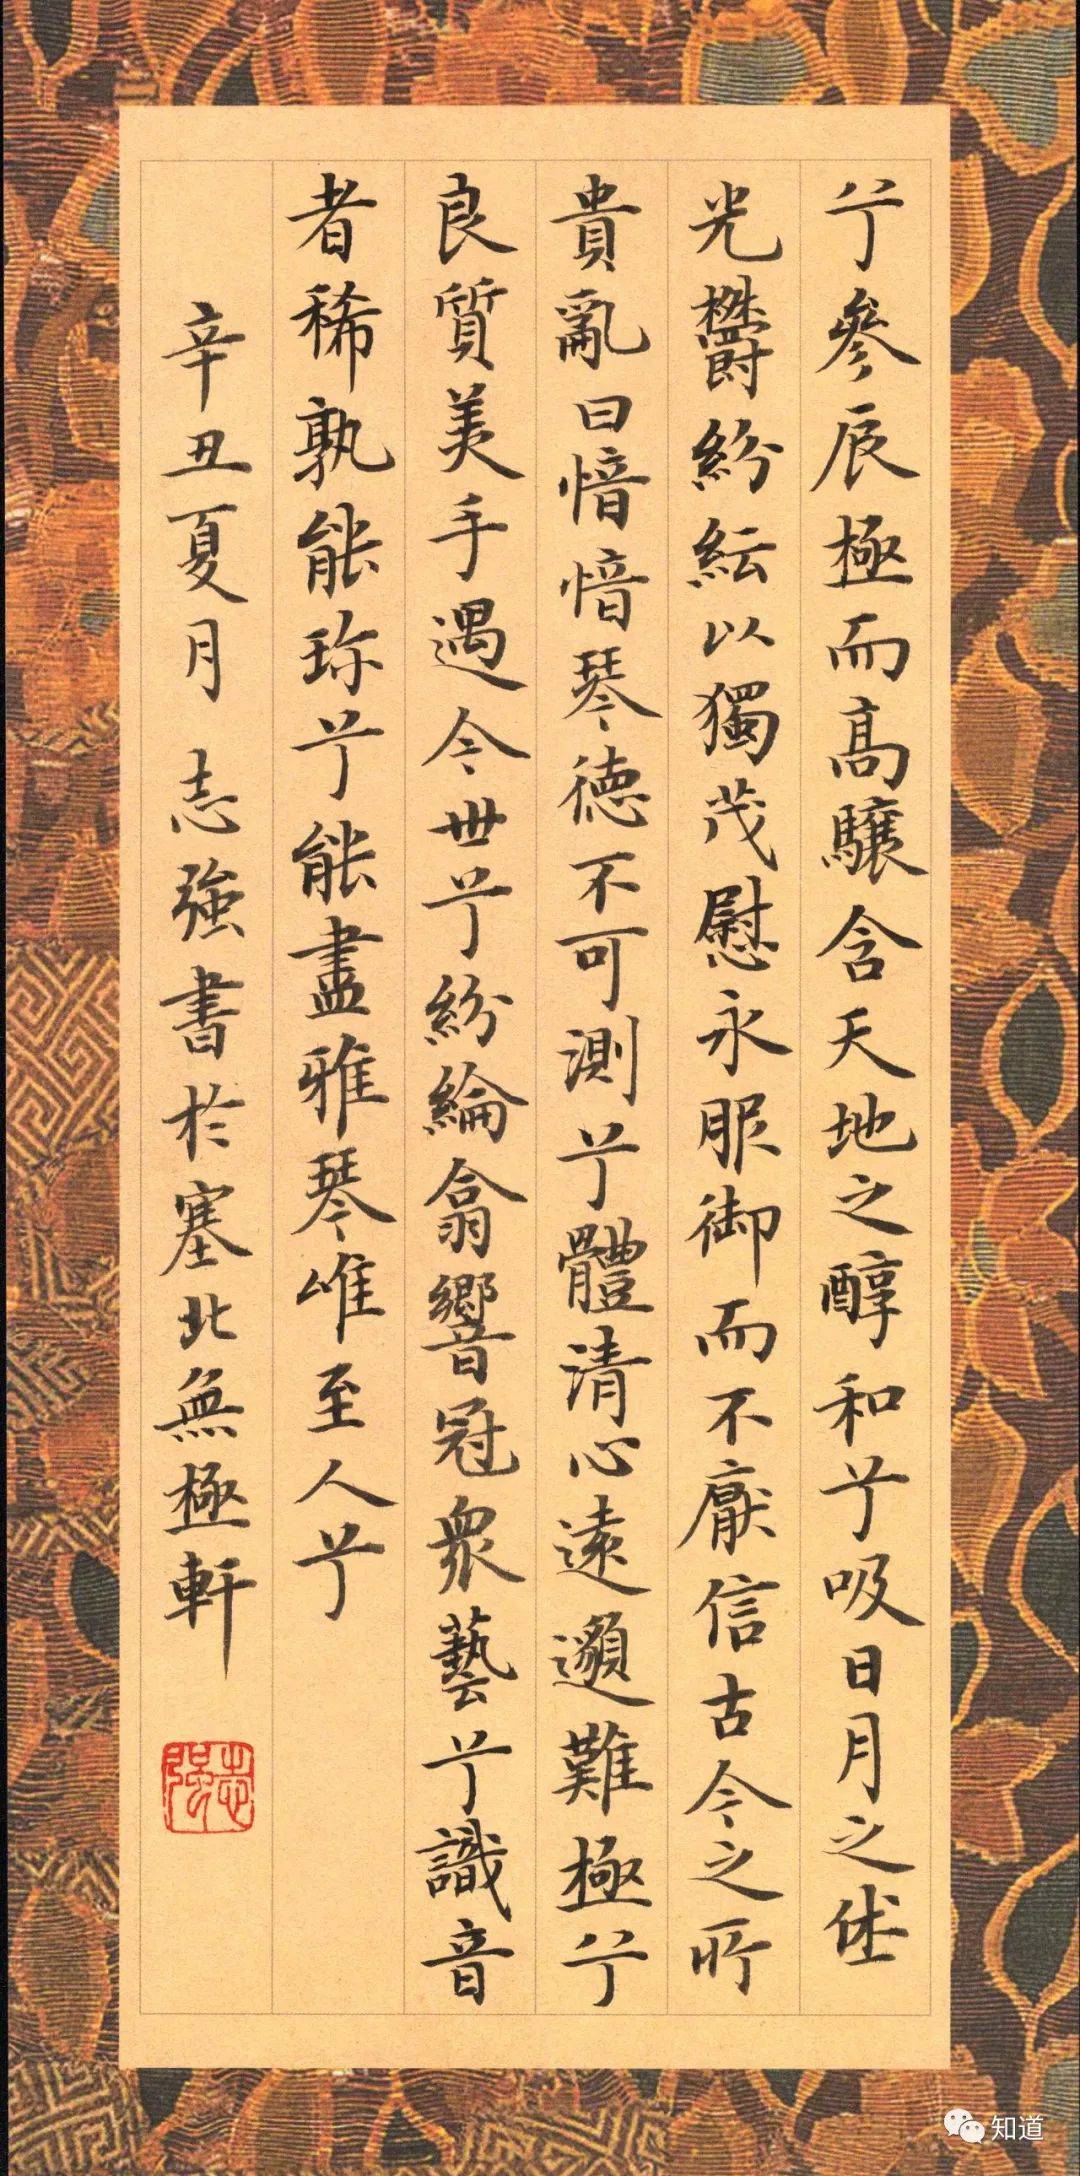 兮參辰極而高驤含天地之醇和兮吸日月之休
光欝紛紜以獨茂慰永服御而不厭信古今之所
貴亂曰愔愔琴德不可測兮體清心遠邈難極兮
良質美手遇今世兮紛綸翕響冠衆藝兮識音
者稀孰能珎兮能盡雅琴唯至人兮
辛丑夏月 志強書於塞北無極軒
志强
知道